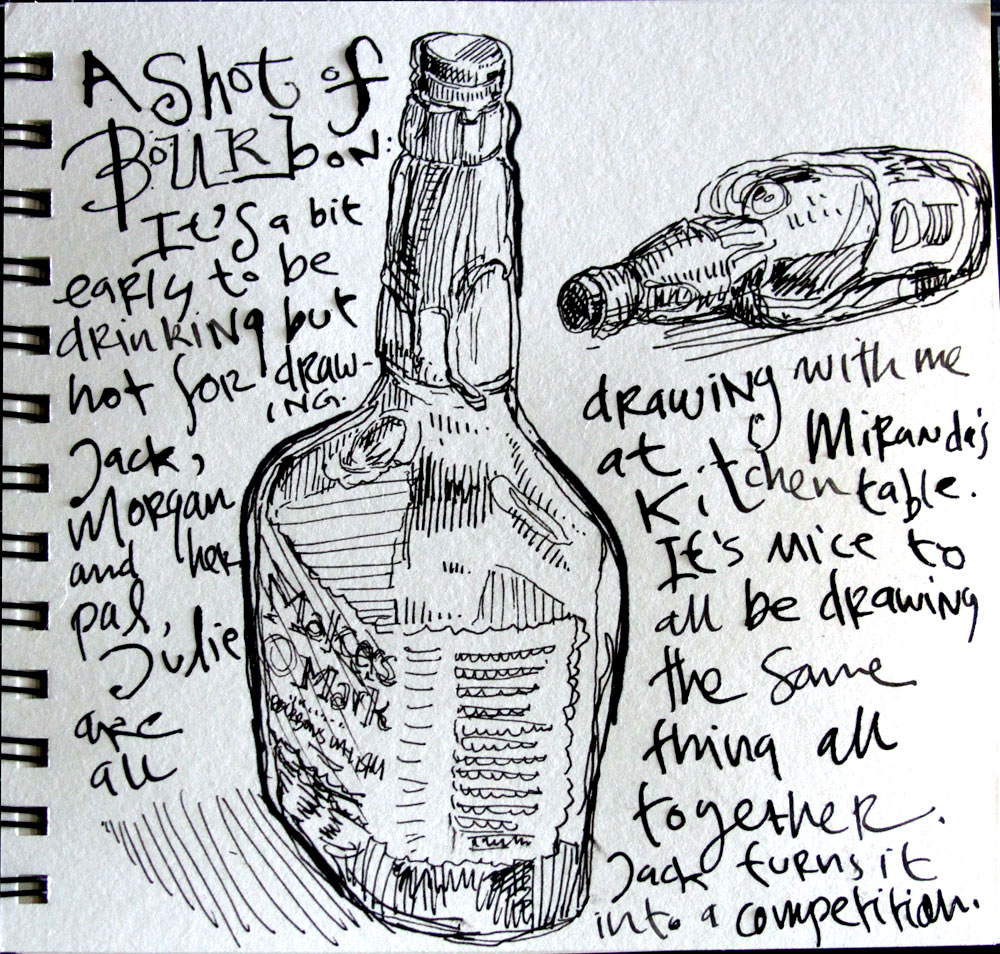 A Shot of
BOURBON:
It's a bit
early to be
drinking but
not for draw-
ING.
Jack,
Morgan
and her
pal,
Julie
are
all
Makers
Mark
drawing with me
at Miranda's
Kitchen table.
It's nice to
all be drawing
the same
thing all
together.
Jack turns it
into a competition.